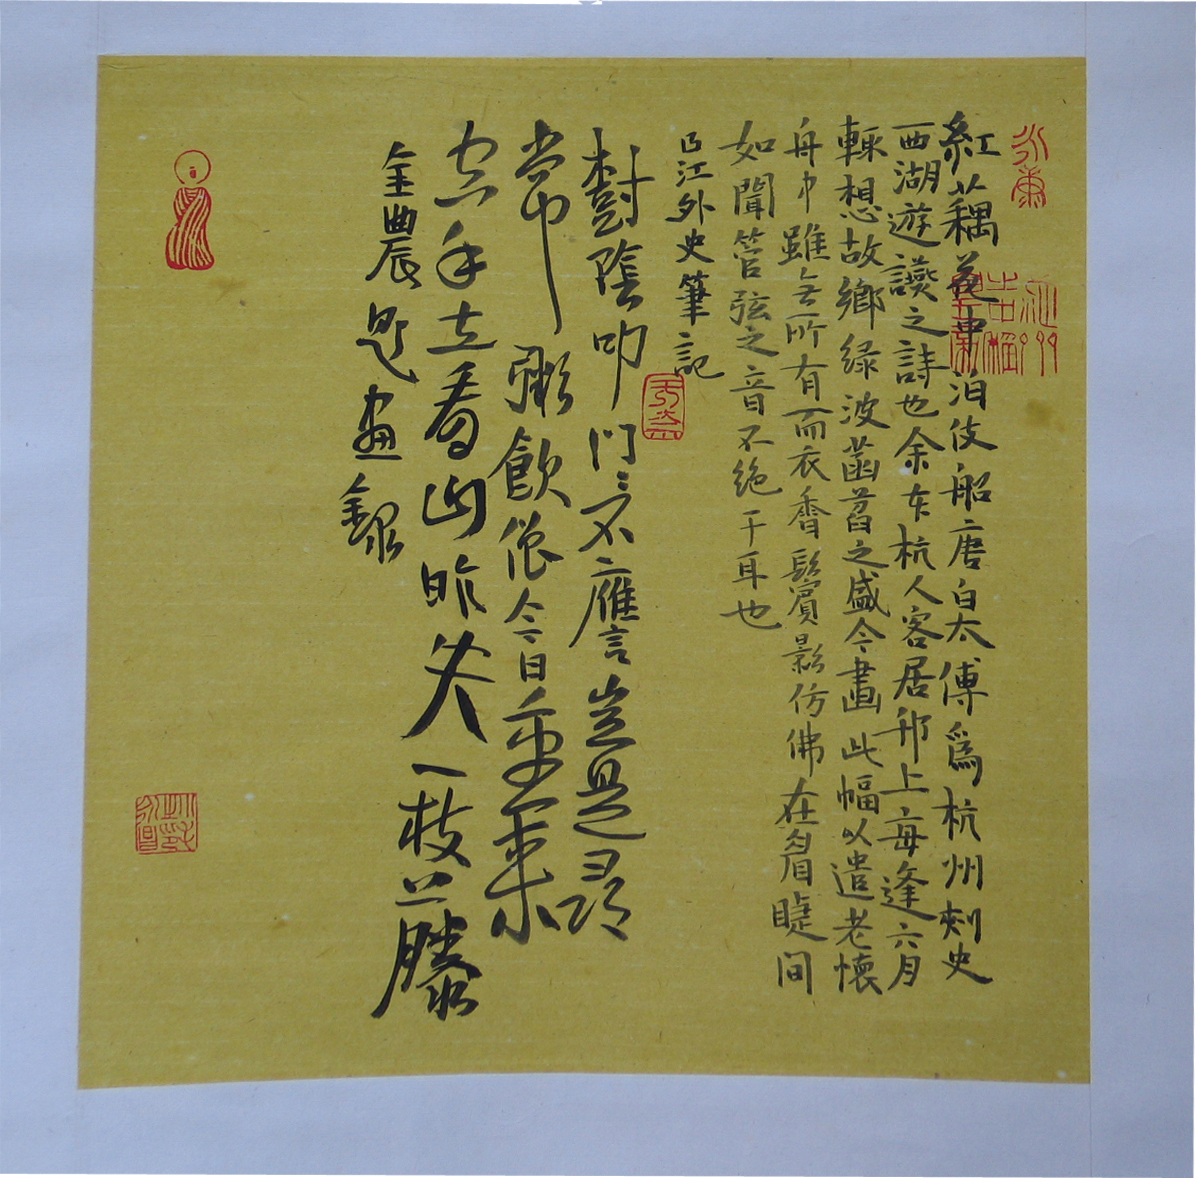 紅藕花中泊伎船唐白太傅為杭州刺史
西湖遊讌之詩也余本杭人客居邗上每逢六月
輒想故鄉綠波菡萏之盛今畫此幅以遣老懷
舟中雖無所有而衣香鬢影仿佛在眉睫間
如聞管弦之音不絕于耳也
江外史筆記
樹陰叩門門不應豈是尋
常粥飲僧今日重來
空手立看山昨失一枝藤
金農題畫錄